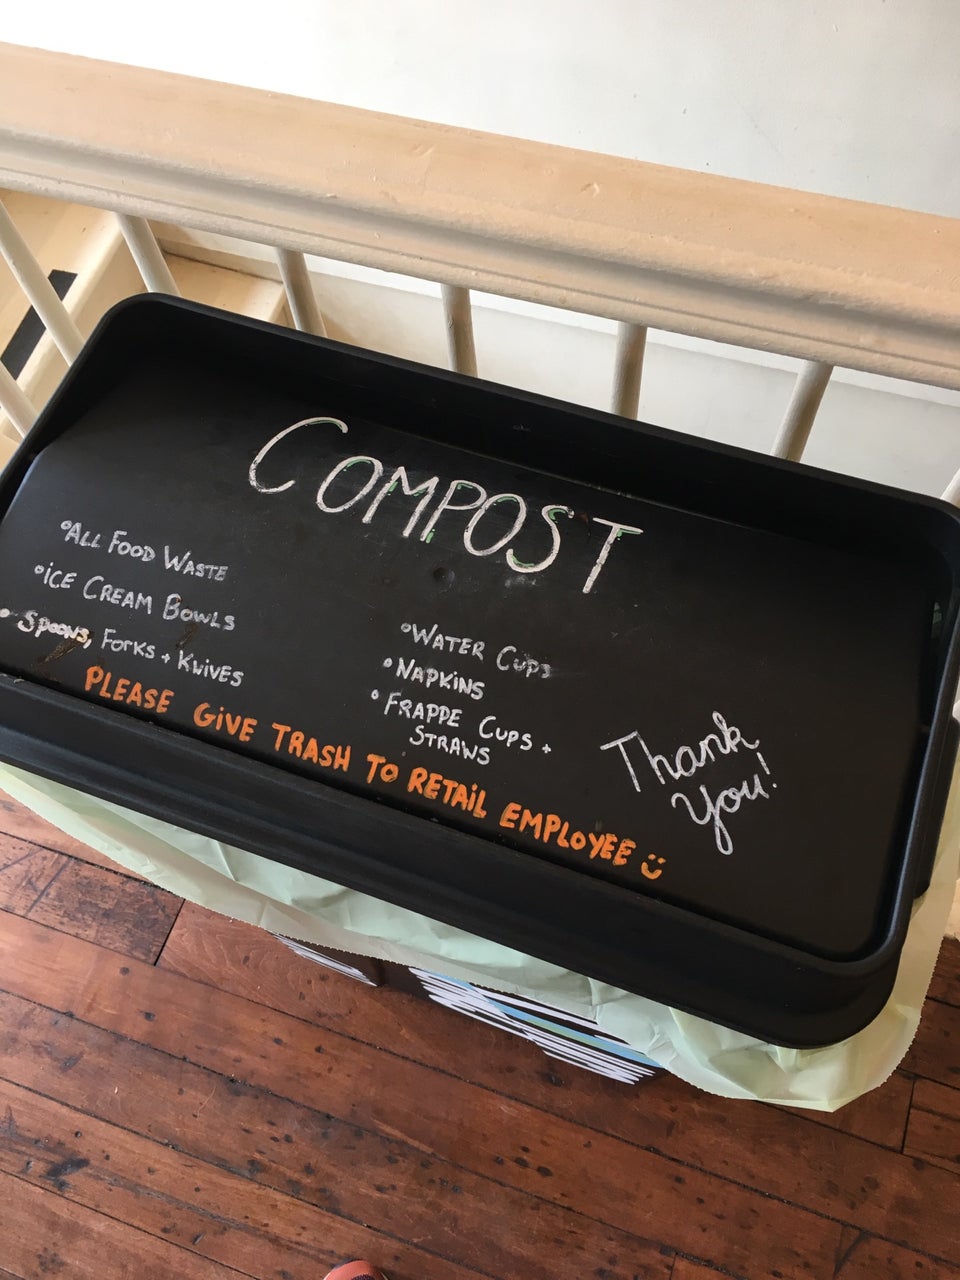 COMPOST
•ALL FOOD WASTE
•ICE CREAM BOWLS
•SPOONS, FORKS + KNIVES
•WATER CUPS
•NAPKINS
•FRAPPE CUPS +
STRAWS
PLEASE GIVE TRASH TO RETAIL EMPLOYEE
Thank
You!